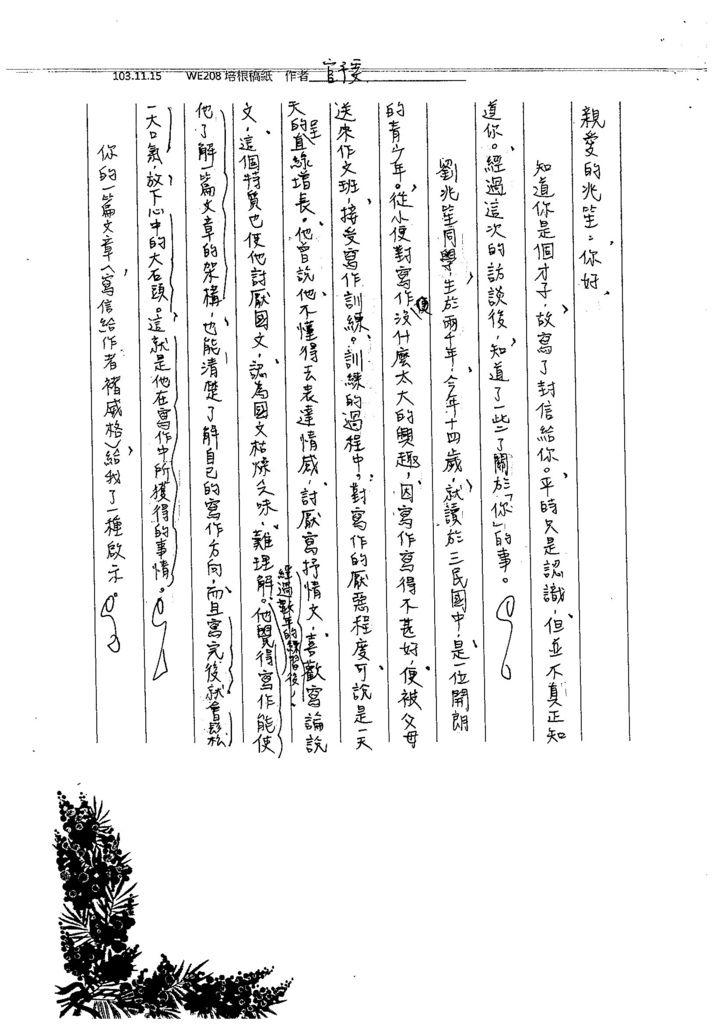 103.11.15 WE208 培根稿紙 作者 官予雯
親愛的兆笙：你好，
知道你是個才子，故寫了封信給你。平時只是認識，但並不真正知
道你。經過這次的訪談後，知道了一些了關於「你」的事。
劉兆笙同學，生於兩千年，今年十四歲，就讀於三民國中，是一位開朗
的青少年。從小便對寫作沒什麼太大的興趣，因寫作寫得不甚好，便被父母
送來作文班，接受寫作訓練。訓練的過程中，對寫作的厭惡程度可說是一天
天的呈直線增長。他曾說他不懂得去表達情感，討厭寫抒情文，喜歡寫論說
文，這個特質也使他討厭國文，認為國文枯燥乏味，難理解。經過數年的練習後，他覺得寫作能使
他了解一篇文章的架構，也能清楚了解自己的寫作方向，而且寫完後就會鬆
一大口氣，放下心中的大石頭。這就是他在寫作中所獲得的事情。
你的一篇文章〈寫信給作者褚威格〉給我了一種啟示。